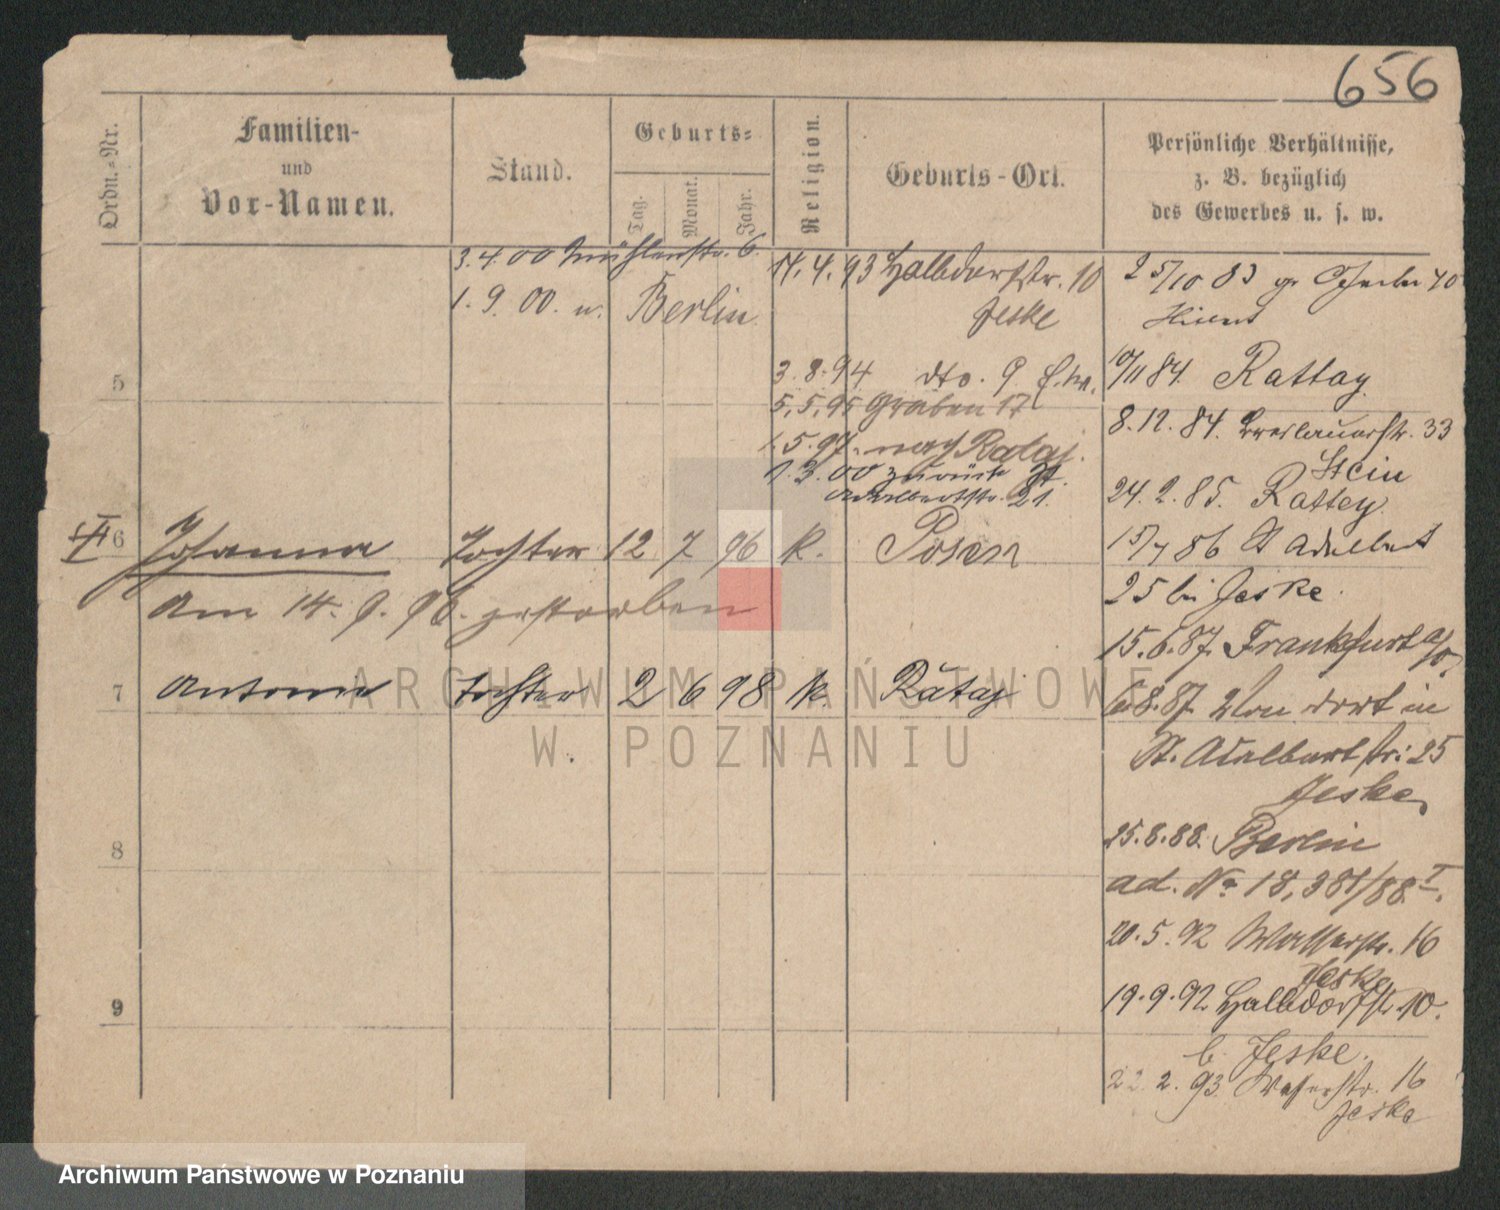 656
Ordn.-Nr.
Familien-
und
Vor-Namen.
Stand.
Geburts-
Tag.
Monat.
Jahr.
Religion.
Geburts-Ort.
Persönliche Verhältnisse,
z. B. bezüglich
des Gewerbes u. s. w.
3.4.00 Mühlenstr. 6.
1.9.00. n. Berlin
14.4.93 Halbdorfstr. 10
Jeske
3.8.94 dto. 9
5.5.95 Graben 17
1.5.97. nach Rataj.
1.3.00 zurück St.
Adalbertstr. 21.
25/10 83
10/11 84. Rattay
8.12.84. Breslauerstr. 33
Stein
24.2.85. Rattey
15/7 86 St Adalbert
25 bei Jeske.
15.6.87. Frankfurt a/O.
6.8.87. Von dort in
St. Adalbertstr: 25
Jeske,
25.8.88. Berlin
ad. No 18,381/88 I.
20.5.92 Wasserstr. 16
Jeske
19.9.92 Halbdorfstr. 10.
b. Jeske.
22.2.93. Wasserstr. 16
Jeske
5
6 Johanna Tochter 12 7 96 k. Posen
Am 14.9.96. gestorben
7 Antonie Tochter 2 6 98 k. Rataj
8
9
ARCHIWUM PAŃSTWOWE
W POZNANIU
Archiwum Państwowe w Poznaniu